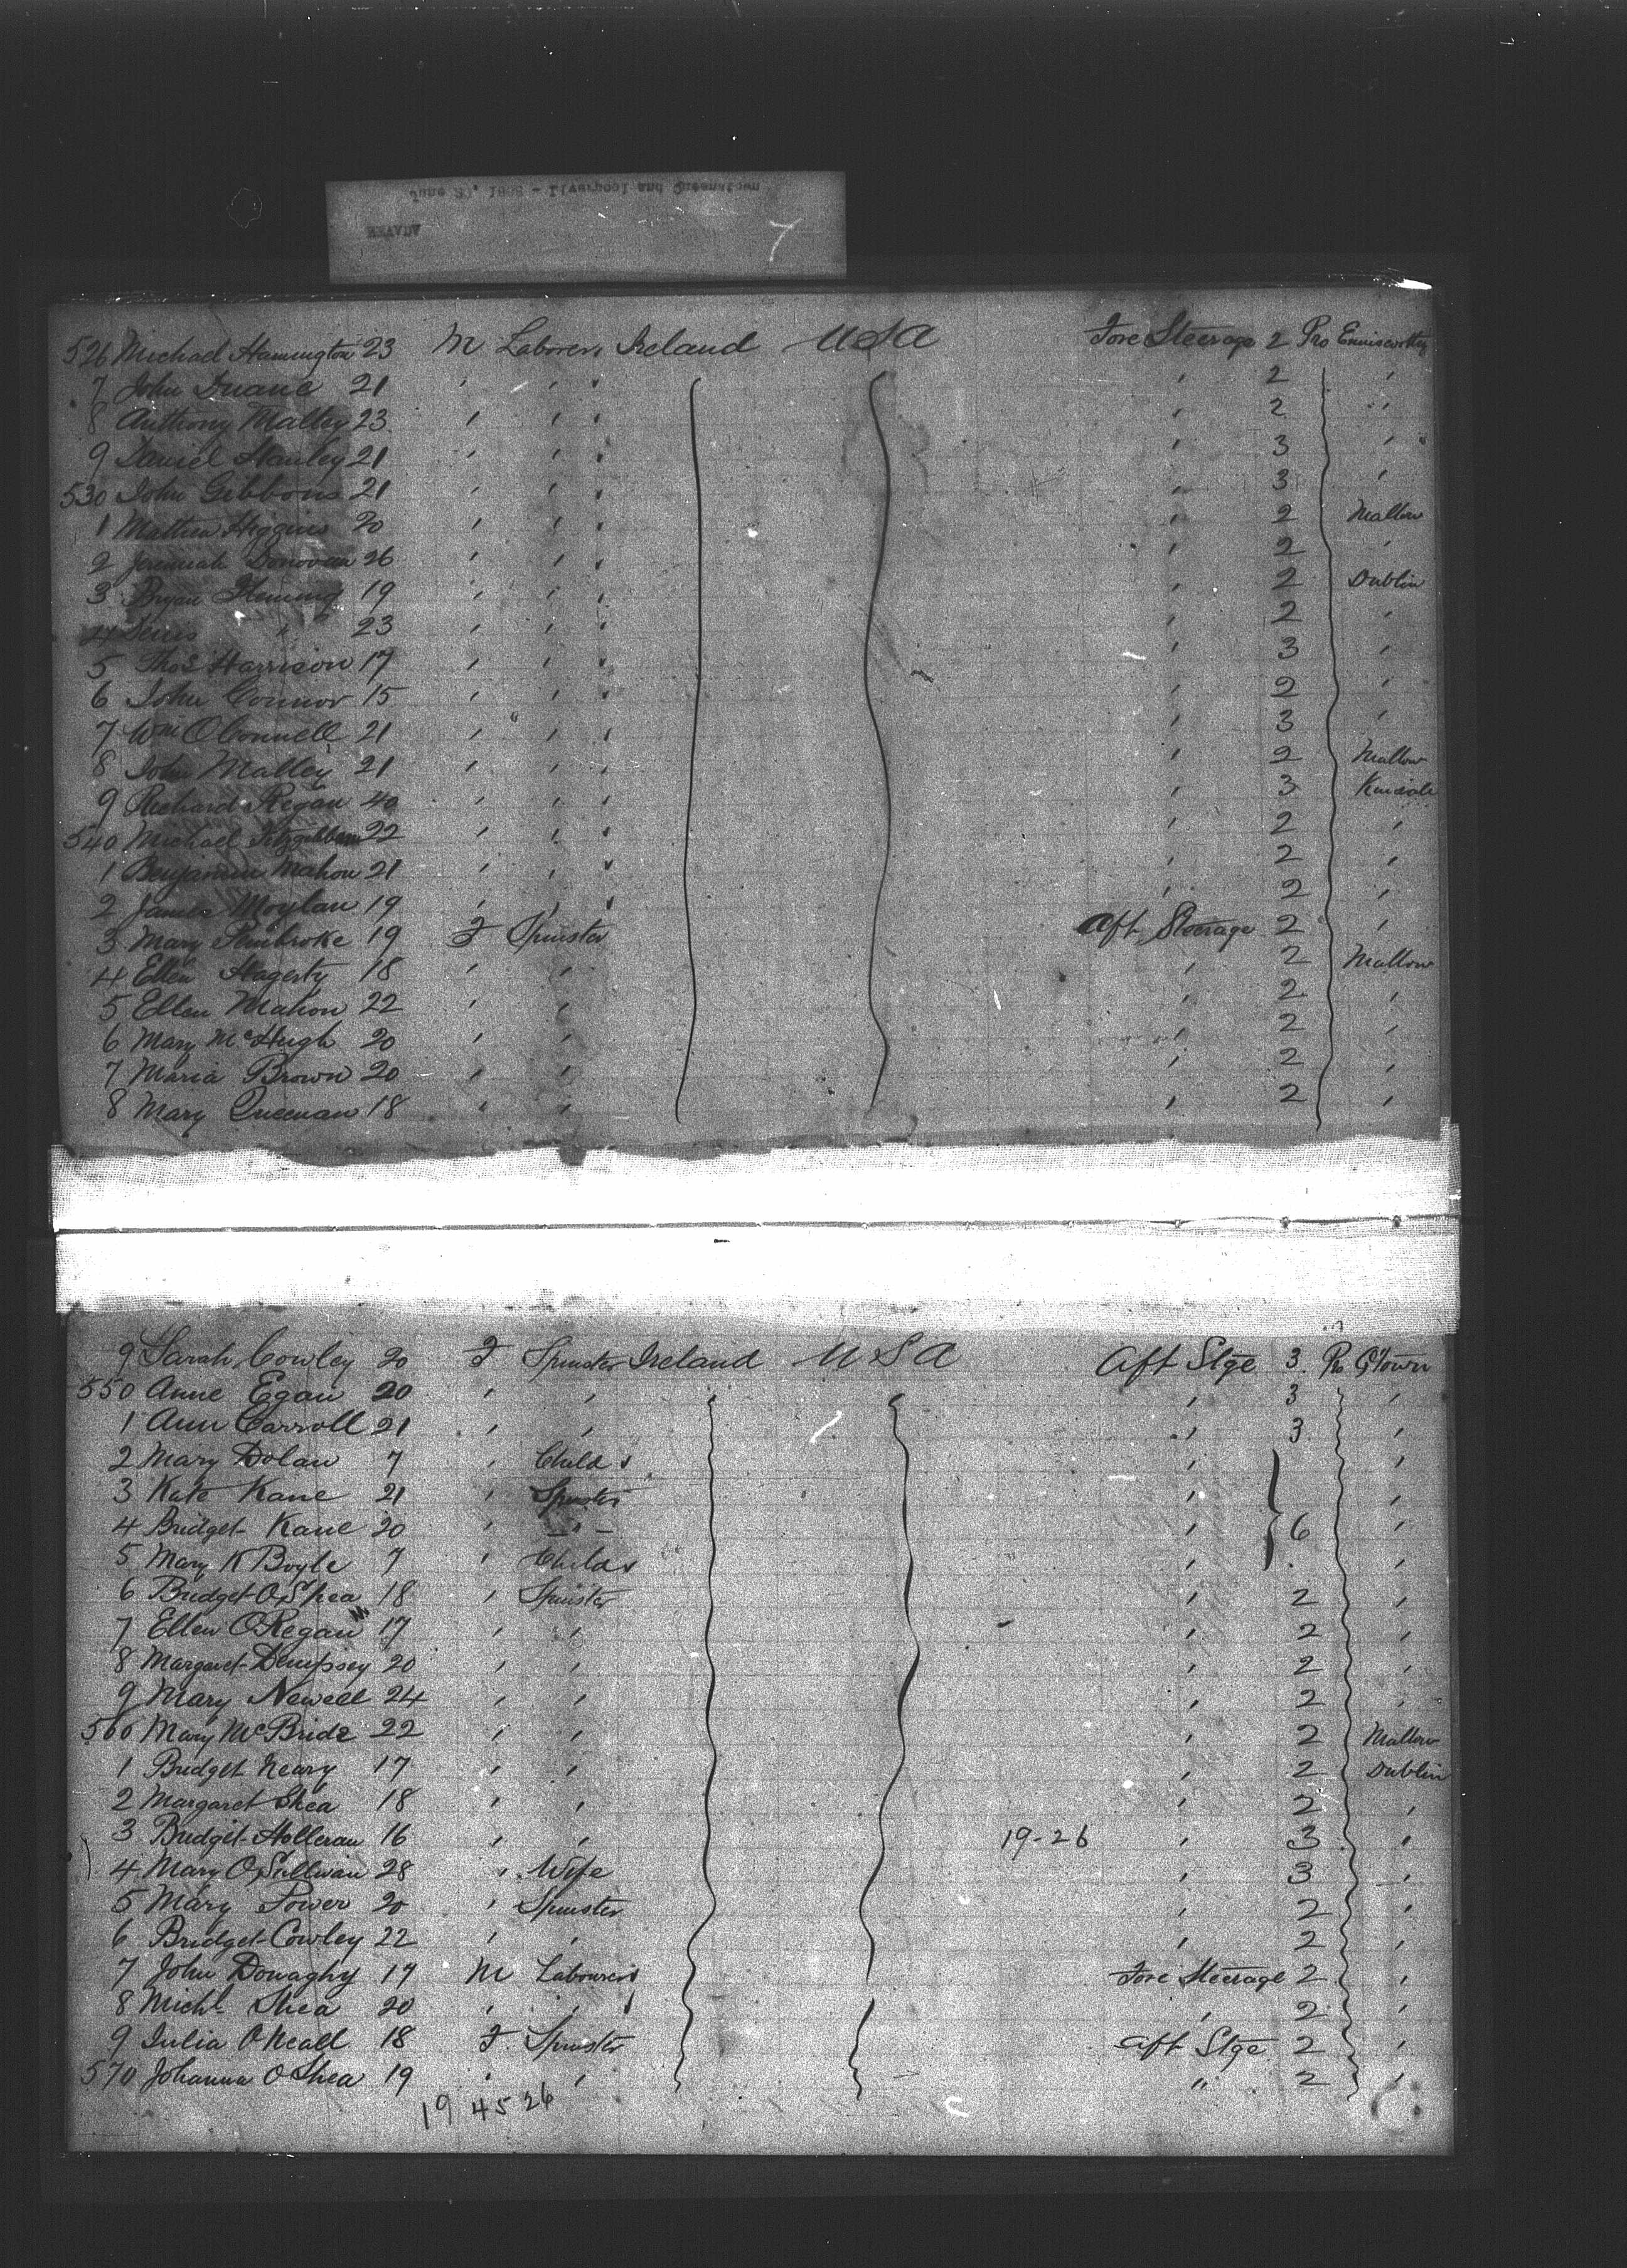 June 20, 1888 - Liverpool and Queenstown
7
526 Michael Hannington 23 M Laborers Ireland USA Fore Steerage 2 Pro Enniscorthy
7 John Duane 21 " " " " 2 "
8 Anthony Malley 23 " " " " 2 "
9 Daniel Hanley 21 " " " " 3 "
530 John Gibbons 21 " " " " 3 "
1 Mathew Higgins 20 " " " " 2 Mallow
2 Jeremiah Donovan 26 " " " " 2 "
3 Bryan Fleming 19 " " " " 2 Dublin
4 " 23 " " " " 2 "
5 Thos Harrison 17 " " " " 3 "
6 John Connor 15 " " " " 2 "
7 Wm O'Connell 21 " " " " 3 "
8 John Malley 21 " " " " 2 Mallow
9 Richard Regan 40 " " " " 3 Kinsale
540 Michael Fitzgibbon 22 " " " " 2 "
1 Benjamin Mahon 21 " " " " 2 "
2 James Moylan 19 " " " " 2 "
3 Mary Pembroke 19 F Spinster Aft Steerage 2 "
4 Ellen Hagerty 18 " " " 2 Mallow
5 Ellen Mahon 22 " " " 2 "
6 Mary McHugh 20 " " " 2 "
7 Maria Brown 20 " " " 2 "
8 Mary Queenan 18 " " " 2 "
9 Sarah Cowley 20 F Spinster Ireland USA Aft Stge 3 Pro Q'town
550 Anne Egan 20 " " " 3 "
1 Ann Carroll 21 " " " 3 "
2 Mary Dolan 7 " Child " " "
3 Kate Kane 21 " Spinster " "
4 Bridget Kane 20 " - " - " 6 "
5 Mary K Boyle 7 " Child " " "
6 Bridget O'Shea 18 " Spinster " 2 "
7 Ellen O'Regan 17 " " " 2 "
8 Margaret Dempsey 20 " " " 2 "
9 Mary Newell 24 " " " 2 "
560 Mary McBride 22 " " " 2 Mallow
1 Bridget Neary 17 " " " 2 Dublin
2 Margaret Shea 18 " " " 2 "
3 Bridget Holleran 16 " " 19-26 " 3 "
4 Mary O'Sullivan 28 " Wife " 3 "
5 Mary Power 20 " Spinster " 2 "
6 Bridget Cowley 22 " " " 2 "
7 John Donaghy 17 M Labourers Fore Steerage 2 "
8 Michl Shea 20 " " " " 2 "
9 Julia O'Neall 18 F Spinster Aft Stge 2 "
570 Johanna O'Shea 19 " " " 2 "
19 45 26